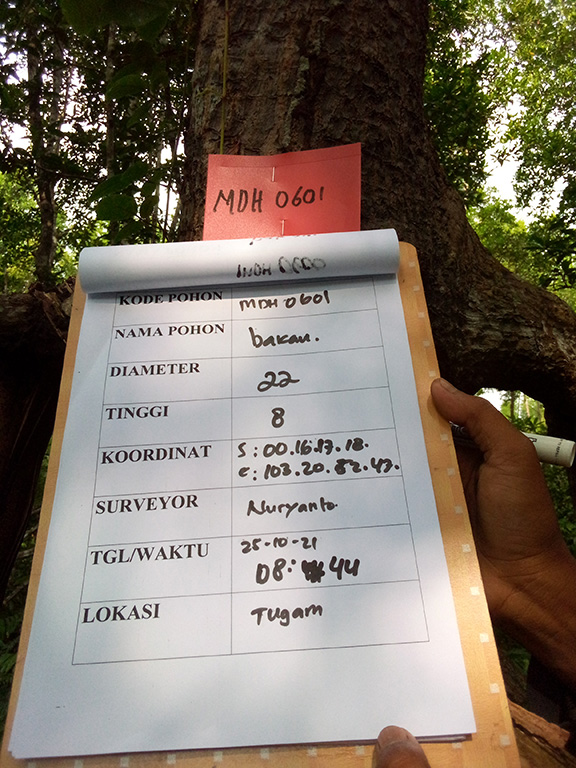 MDH 0601
KODE POHON MDH 0601
NAMA POHON bakau.
DIAMETER 22
TINGGI 8
KOORDINAT S : 00.16.17.18.
E : 103.20.82.47.
SURVEYOR Nuryanto
TGL/WAKTU 25-10-21
08: 44
LOKASI Tugam